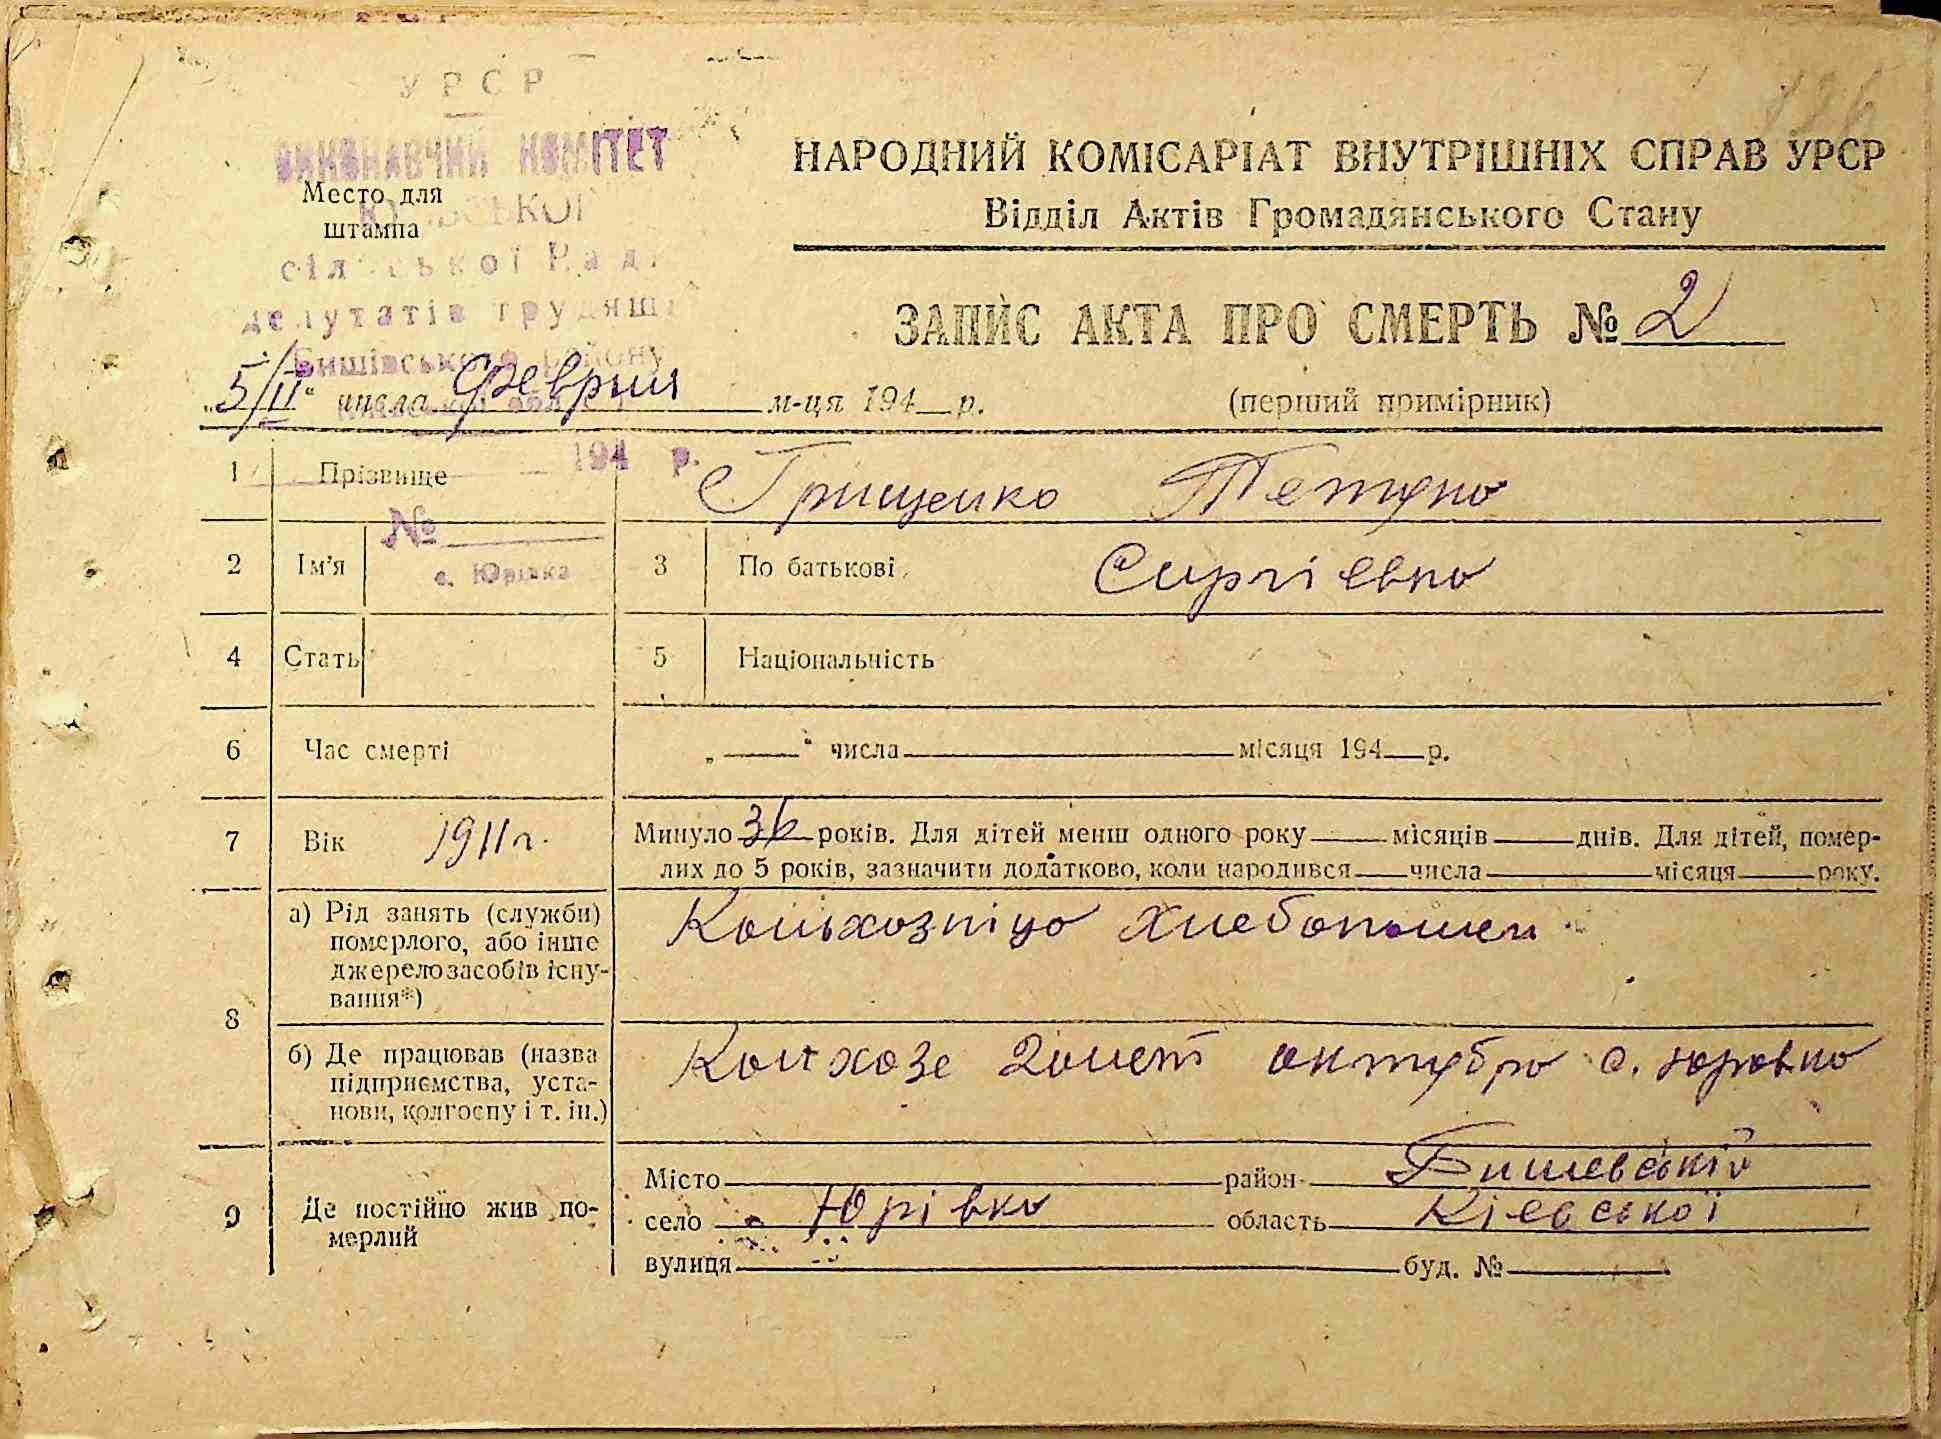 УРСР
ВИКОНАВЧИЙ КОМІТЕТ
Место для
штампа
сільської Ради
депутатів трудящи
Бишівського району
НАРОДНИЙ КОМІСАРІАТ ВНУТРІШНІХ СПРАВ УРСР
Відділ Актів Громадянського Стану
ЗАПИС АКТА ПРО СМЕРТЬ № 2
„5/II“ числа Феврия м-ця 194 р.
(перший примірник)
194 р.
1 Прізвище Грищенко Тетяна
№
с. Юрівка
2 Ім'я 3 По батькові Сиргіевна
4 Стать 5 Національність
6 Час смерті „ “ числа місяця 194 р.
7 Вік 1911 г. Минуло 36 років. Для дітей менш одного року місяців днів. Для дітей, помер-
лих до 5 років, зазначити додатково, коли народився числа місяця року.
8 а) Рід занять (служби)
померлого, або інше
джерело засобів існу-
вання*)
Кольхозніца хлебопашец
б) Де працював (назва
підприємства, уста-
нови, колгоспу і т. ін.)
Колхозе 20 лет октября с. Юровка
9 Де постійно жив по-
мерлий
Місто район Бишевський
село Юрівка область Кієвської
вулиця буд. №